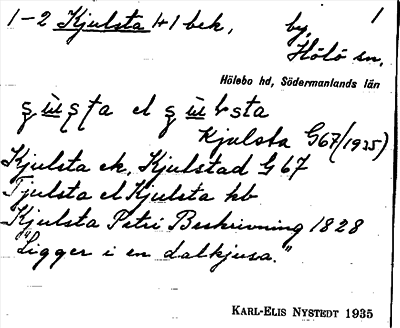 1-2 Kjulsta 4 1 bek, by, 1
Hölö sn.
Hölebo hd, Södermanlands län
el
Kjulsta G67 (1925)
Kjulsta ek, Kjulstad G 67
Tjulsta el Kjulsta kb
Kjulsta Petri Beskrivning 1828
"Ligger i en dalkjusa."
KARL-ELIS NYSTEDT 1935